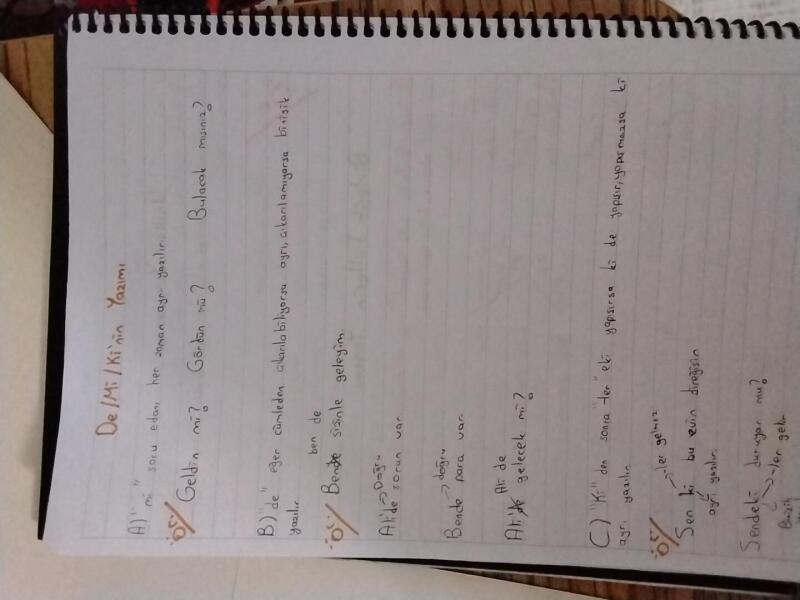 De/Mi/Ki'nin Yazımı
A) "mi" soru edatı, her zaman ayrı yazılır.
ÖR/ Geldin mi? Gördün mü? Bulacak mısınız?
B) "de" eğer cümleden çıkarılabiliyorsa ayrı, çıkarılamıyorsa bitişik
yazılır.
ben de
ÖR/ Bende sizinle geleyim.
→Doğru
Ali'de sorun var.
→doğru
Bende para var.
Ali de
Ali'de gelecek mi?
C) "Ki" den sonra "ler" eki yapışırsa ki de yapışır, yapışmazsa ki
ayrı yazılır.
ÖR/ →ler gelmez
Sen ki bu evin direğisin
ayrı yazılır.
Sendeki duruyor mu?
→ler gelir